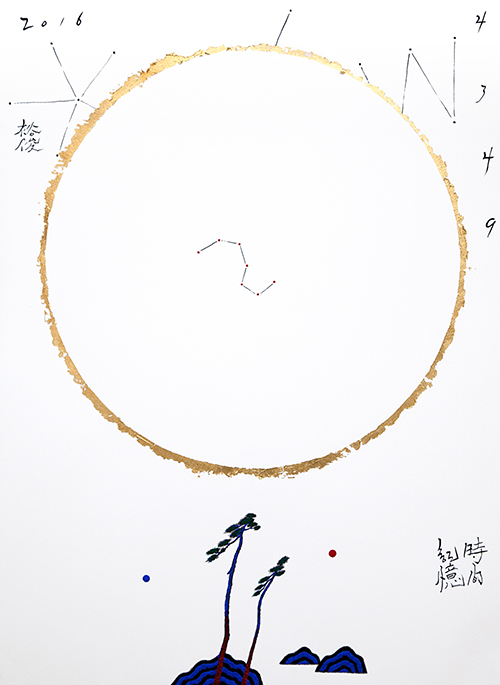 2016
4349
時間
記憶